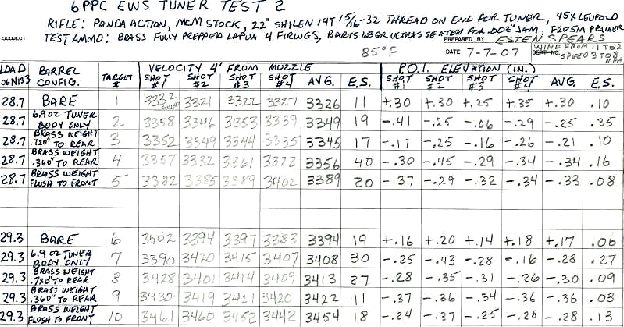 6PPC EWS TUNER TEST 2
RIFLE: PANDA ACTION, MCM STOCK, 22" SHILEN 14T 15/16-32 THREAD ON END FOR TUNER, 45X LEUPOLD
TEST AMMO: BRASS FULLY PREPPED LAPUA 4 FIRINGS, SEATED FOR .002" JAM. F205M PRIMER
PREPARED BY ESTEN SPEARS
85°C DATE 7-7-07 WIND FROM
LOAD BARREL TARGET VELOCITY 4' FROM MUZZLE P.O.I. ELEVATION (IN.)
CONFIG. # SHOT #1 SHOT #2 SHOT #3 SHOT #4 AVG. E.S. SHOT #1 SHOT #2 SHOT #3 SHOT #4 AVG E.S.
28.7 BARE 1 3321 3322 3327 3326 11 +.30 +.30 +.25 +.35 +.30 .10
28.7 6.9 OZ TUNER BODY ONLY 2 3358 3346 3353 3339 3349 19 -.41 -.25 -.06 -.29 -.25 .35
28.7 BRASS WEIGHT .720" TO REAR 3 3352 3349 3344 3335 3345 17 -.17 -.25 -.16 -.26 -.21 .10
28.7 BRASS WEIGHT .360" TO REAR 4 3357 3332 3361 3372 3356 40 -.30 -.45 -.29 -.34 -.34 .16
28.7 BRASS WEIGHT FLUSH TO FRONT 5 3382 3385 3389 3402 3389 20 -.37 -.29 -.32 -.34 -.33 .08
29.3 BARE 6 3402 3394 3397 3383 3394 19 +.16 +.20 +.14 +.18 +.17 .06
29.3 6.9 OZ TUNER BODY ONLY 7 3390 3420 3415 3407 3408 30 -.25 -.43 -.28 -.16 -.28 .27
29.3 BRASS WEIGHT .720" TO REAR 8 3428 3401 3414 3409 3413 27 -.28 -.35 -.31 -.26 -.30 .09
29.3 BRASS WEIGHT .360" TO REAR 9 3430 3419 3421 3420 3422 11 -.37 -.36 -.34 -.36 -.36 .03
29.3 BRASS WEIGHT FLUSH TO FRONT 10 3461 3460 3452 3442 3454 18 -.24 -.37 -.25 -.28 -.28 .13